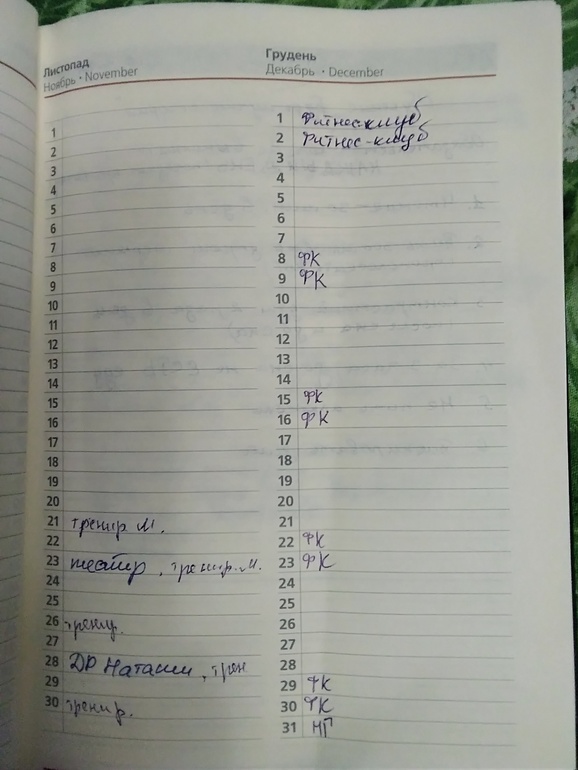 Листопад
Ноябрь • November
1
2
3
4
5
6
7
8
9
10
11
12
13
14
15
16
17
18
19
20
21 тренир. М.
22
23 театр, тренир. М.
24
25
26 трениp.
27
28 ДР Наташи, трен
29
30 тренир.
Грудень
Декабрь • December
1 Фитнес-клуб
2 Фитнес-клуб
3
4
5
6
7
8 ФК
9 ФК
10
11
12
13
14
15 ФК
16 ФК
17
18
19
20
21
22 ФК
23 ФК
24
25
26
27
28
29 ФК
30 ФК
31 НГ